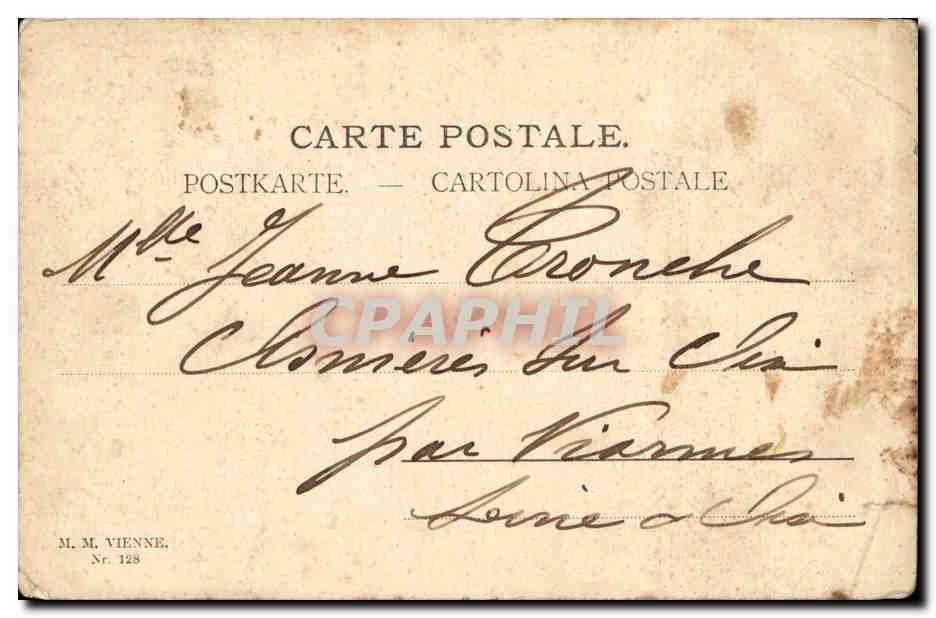 CARTE POSTALE.
POSTKARTE. — CARTOLINA POSTALE
Mlle Jeanne Tronche
CPAPHIL
Asnières sur Oise
par Viarmes
Seine & Oise
M. M. VIENNE.
Nr. 128